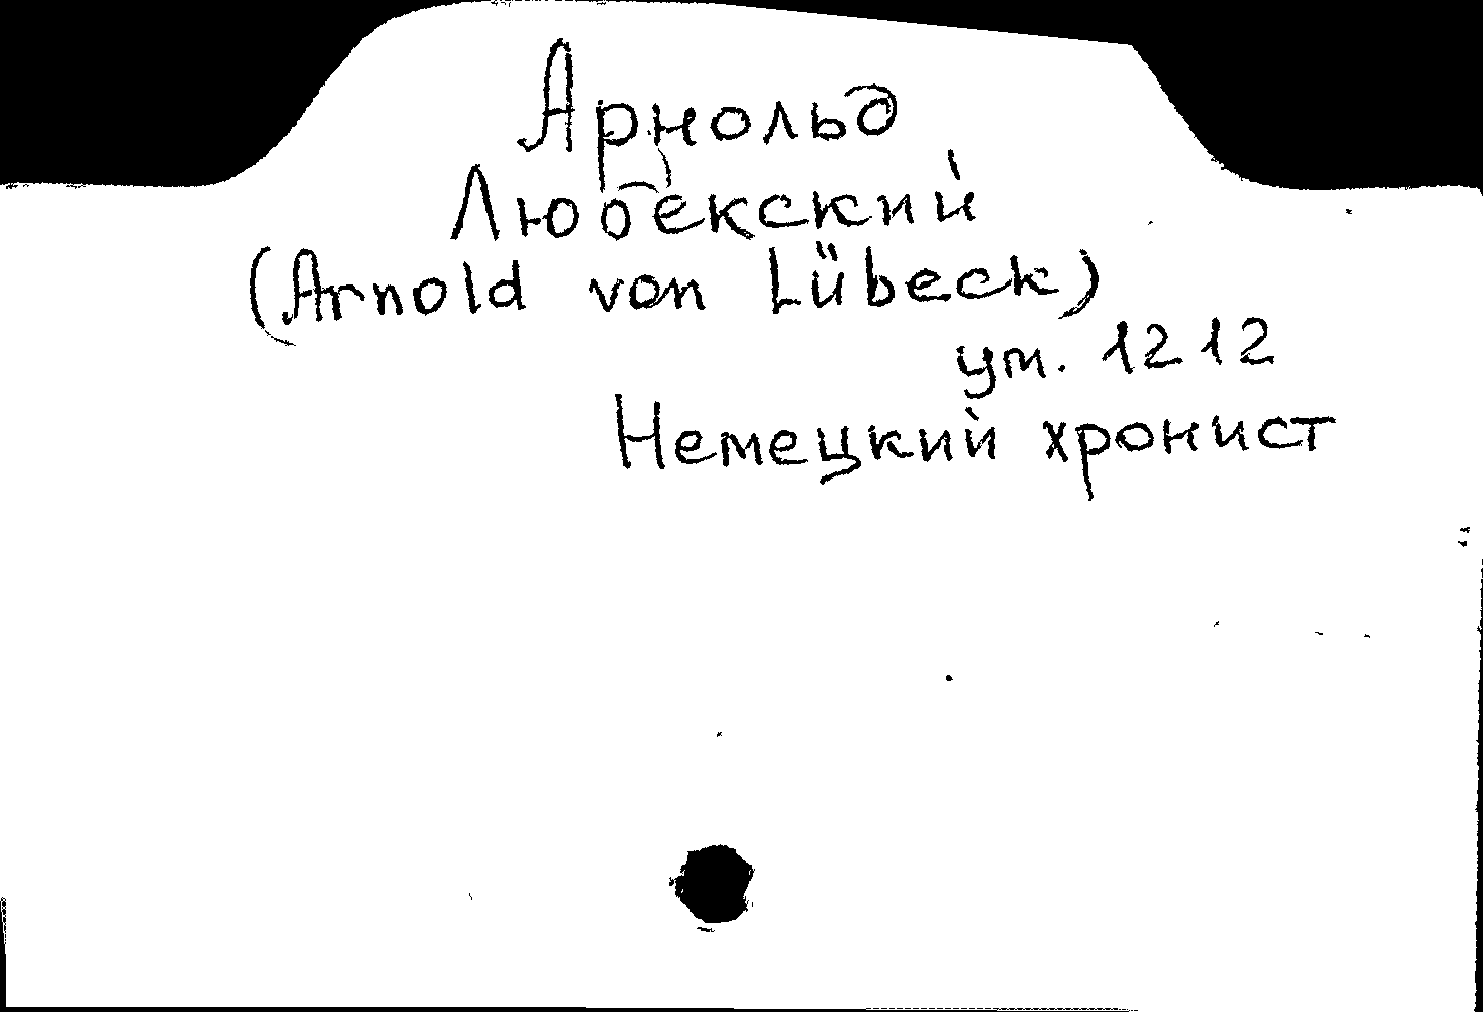 Арнольд
Любекский
(Arnold von Lübeck)
ум. 1212
Немецкий хронист